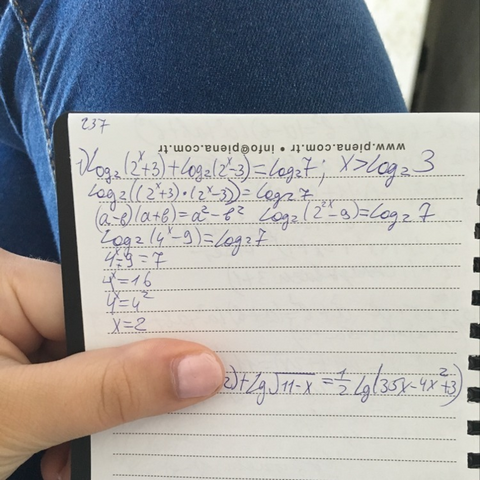 237
www.piena.com.tr • info@piena.com.tr
1) log₂(2ˣ+3)+log₂(2ˣ-3)=log₂7; x>log₂3
log₂((2ˣ+3)·(2ˣ-3))=log₂7
(a-b)(a+b)=a²-b² log₂(2²ˣ-9)=log₂7
log₂(4ˣ-9)=log₂7
4ˣ-9=7
4ˣ=16
4ˣ=4²
x=2
2)+lg√11-x =1/2 lg(35x-4x²+3)